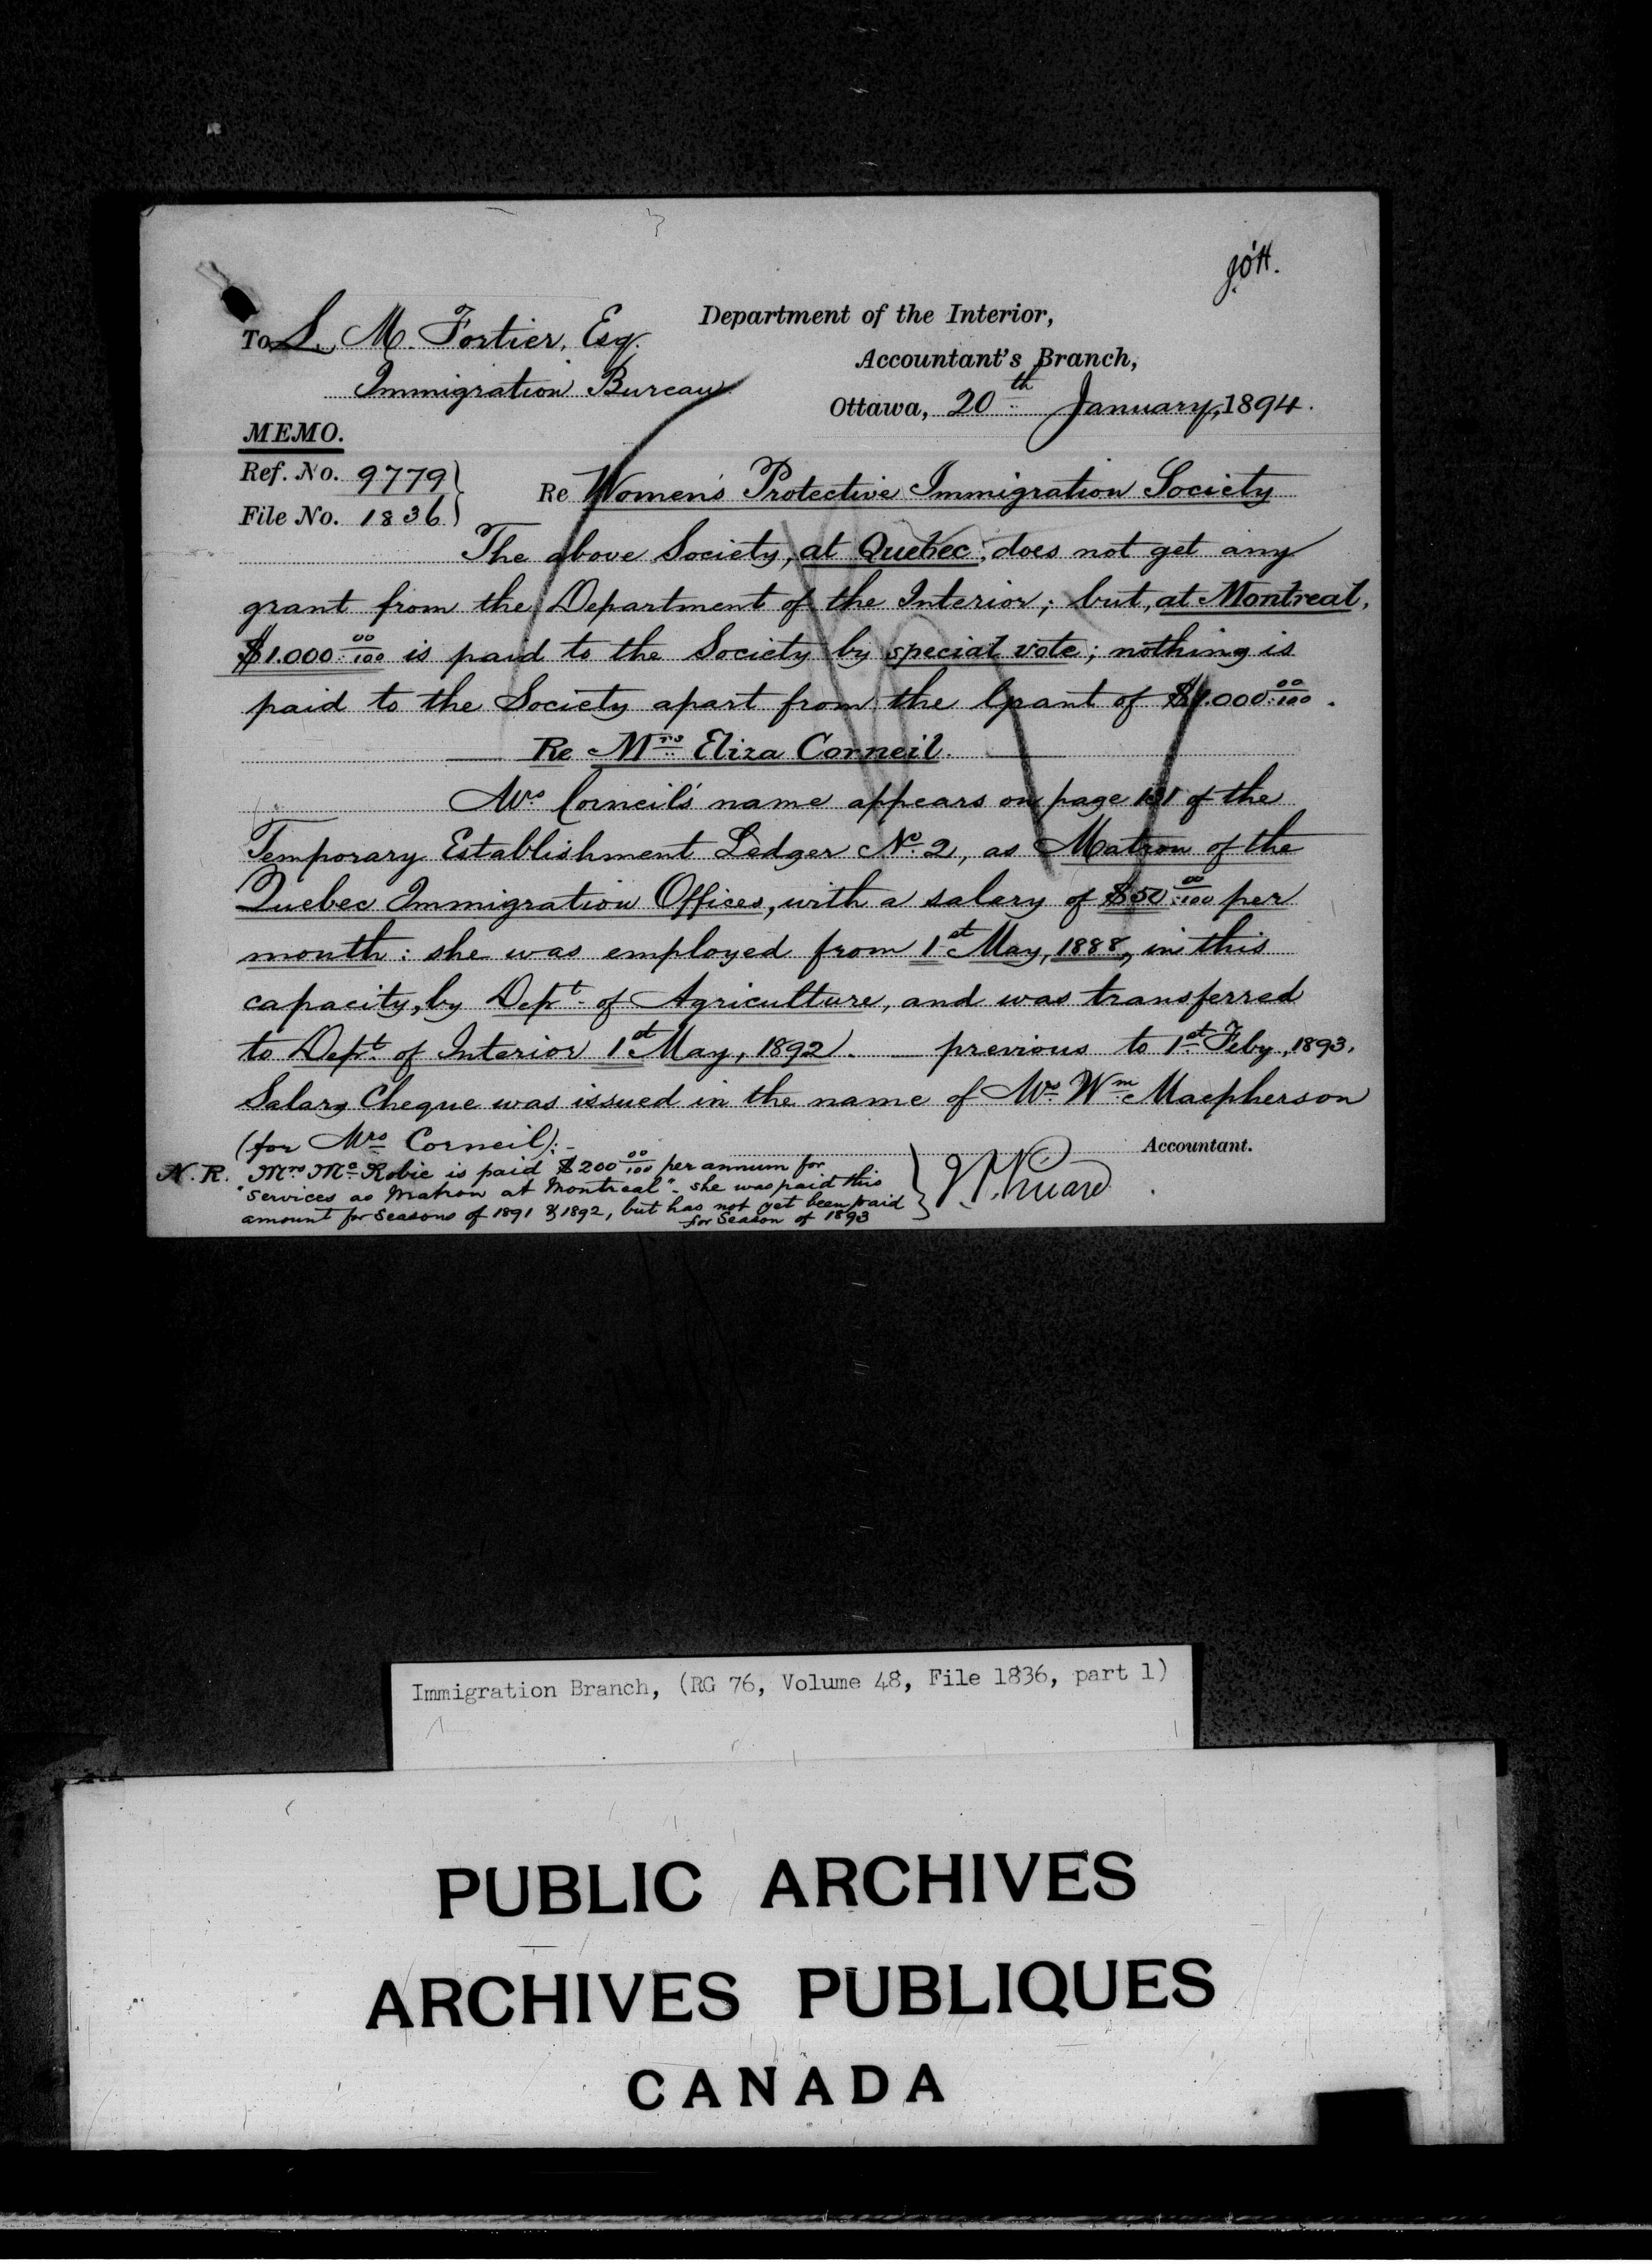 J.O'H.
Department of the Interior,
Accountant's Branch,
Ottawa, 20th January, 1894.
To L. M. Fortier, Esq.
Immigration Bureau
MEMO.
Ref. No. 9779
File No. 1836
Re Women's Protective Immigration Society
The above Society, at Quebec, does not get any
grant from the Department of the Interior; but, at Montreal,
$1.000 00/100 is paid to the Society by special vote; nothing is
paid to the Society apart from the Grant of $1.000 00/100.
Re Mrs Eliza Corneil.
Mrs Corneil's name appears on page 131 of the
Temporary Establishment Ledger No. 2, as Matron of the
Quebec Immigration Offices, with a salary of $50 00/100 per
month: she was employed from 1st May, 1888, in this
capacity, by Dept of Agriculture, and was transferred
to Dept of Interior 1st May, 1892. — previous to 1st Feby, 1893,
Salary Cheque was issued in the name of Mrs Wm Macpherson
(for Mrs Corneil):-
Accountant.
N.B. Mrs McRobie is paid $200 00/100 per annum for
"Services as Matron at Montreal" - she was paid this
amount for Seasons of 1891 & 1892, but has not yet been paid
for Season of 1893
Immigration Branch, (RG 76, Volume 48, File 1836, part 1)
PUBLIC ARCHIVES
ARCHIVES PUBLIQUES
CANADA